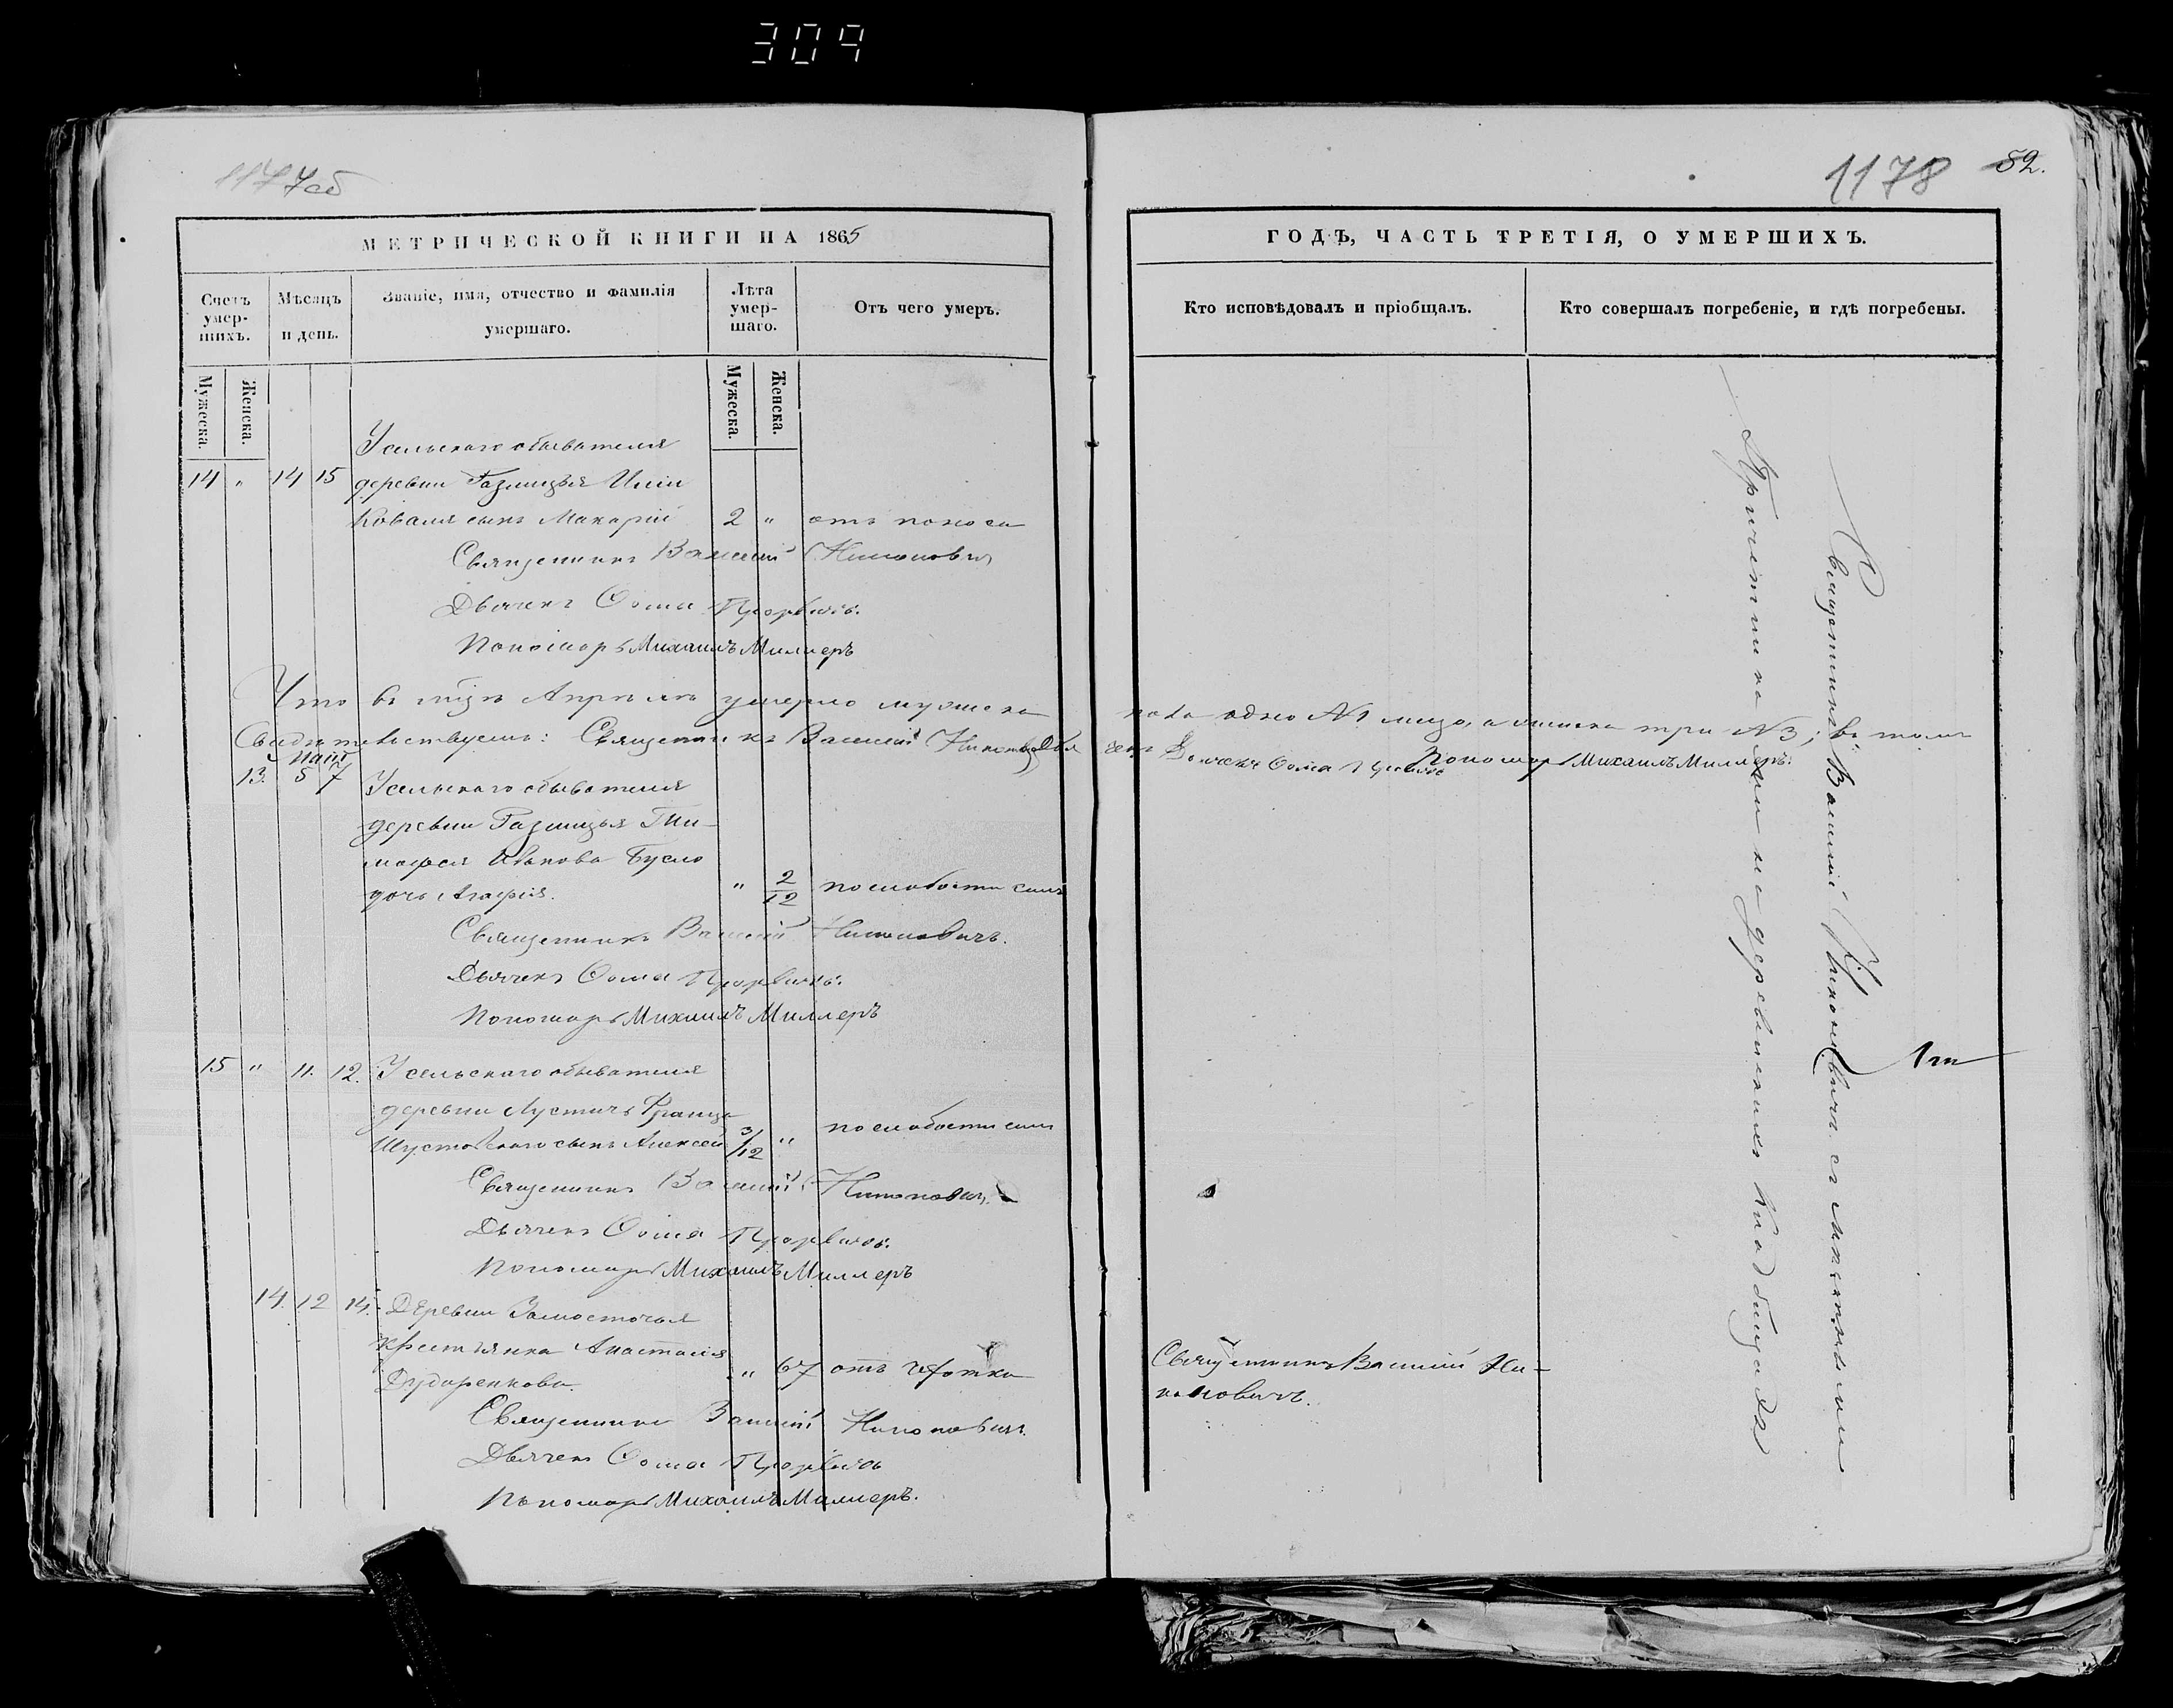 309
1177об
1178 82.
МЕТРИЧЕСКОЙ КНИГИ НА 1865
Счетъ умер-шихъ.
Мѣсяцъ и день.
Званіе, имя, отчество и фамилія умершаго.
Лѣта умер-шаго.
Отъ чего умеръ.
Мужеска.
Женска.
Мужеска.
Женска.
У сельскаго обывателя
14 " 14 15 деревни
Коваля сынъ Макарій 2 " отъ поноса
Священникъ Василій Никоновичъ
Дьячекъ Ѳома
Пономарь Михаилъ Миллеръ
Что въ Апрѣлѣ умерло мужска
Свидѣтельствуемъ: Священникъ Василій
Маій
13. 5 7 У сельскаго обывателя
деревни Ти-
мофея Иванова Бусло
дочь Агафія. " 2/12 по слабости силъ
Священникъ Василій Никоновичъ.
Дьячекъ Ѳома
Пономарь Михаилъ Миллеръ
15 " 11. 12. У сельскаго обывателя
деревни Лустичъ Франца
Шустовскаго сынъ Алексей 3/12 " по слабости силъ
Священникъ Василій Никоновичъ
Дьячекъ Ѳома
Пономарь Михаилъ Миллеръ
14. 12 14. Деревни Замосточья
крестьянка Анастасія
Дударенкова. " 67 отъ
Священникъ Василій Никоновичъ.
Дьячекъ Ѳома
Пономарь Михаилъ Миллеръ.
ГОДЪ, ЧАСТЬ ТРЕТІЯ, О УМЕРШИХЪ.
Кто исповѣдовалъ и пріобщалъ.
Кто совершалъ погребеніе, и гдѣ погребены.
пола одно №1 лицо, а женска три №3; въ томъ
Ѳома Пономарь Михаилъ Миллеръ.
Священникъ Василій Ни-
коновичъ.
Священникъ Василій Никоновичъ съ
Причетники на деревенскихъ кладбищахъ